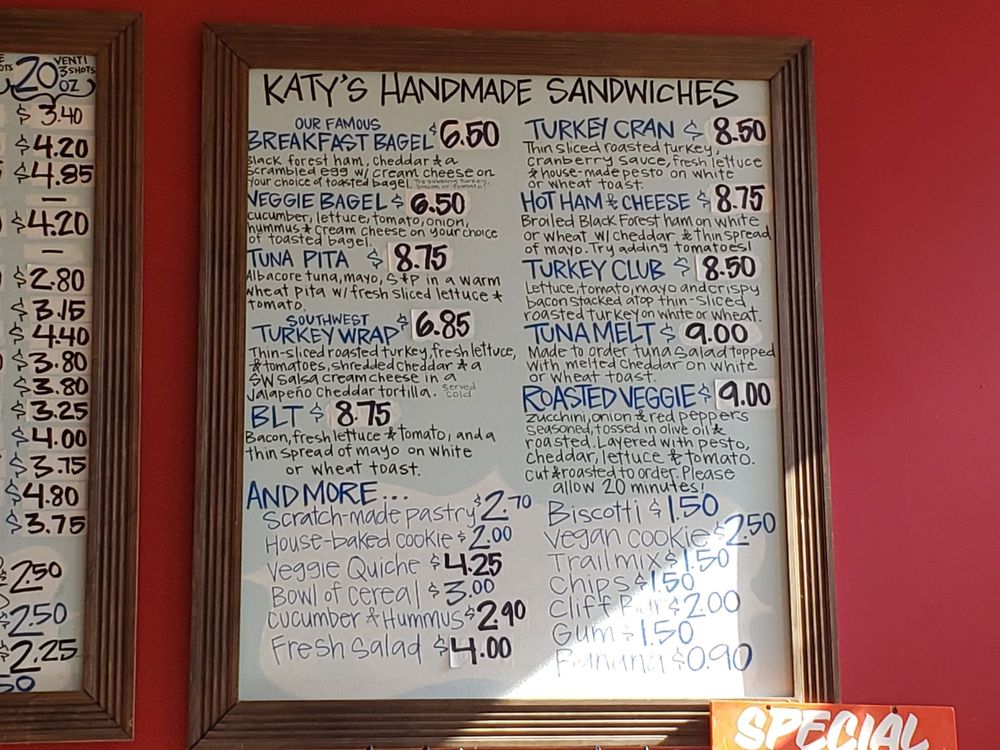 VENTI
3 SHOTS
20 OZ
$3.40
$4.20
$4.85
—
$4.20
—
$2.80
$3.15
$4.40
$3.80
$3.80
$3.25
$4.00
$3.75
$4.80
$3.75
$2.50
$2.50
$2.25
KATY'S HANDMADE SANDWICHES
OUR FAMOUS
BREAKFAST BAGEL $6.50
Black forest ham, cheddar & a
scrambled egg w/ cream cheese on
your choice of toasted bagel. Try subbing turkey,
bacon or tomato!
VEGGIE BAGEL $6.50
cucumber, lettuce, tomato, onion,
hummus & cream cheese on your choice
of toasted bagel.
TUNA PITA $8.75
Albacore tuna, mayo, S&P in a warm
wheat pita w/ fresh sliced lettuce &
tomato.
SOUTHWEST
TURKEY WRAP $6.85
Thin-sliced roasted turkey, fresh lettuce,
& tomatoes, shredded cheddar & a
SW salsa cream cheese in a
jalapeño cheddar tortilla. served
cold
BLT $8.75
Bacon, fresh lettuce & tomato, and a
thin spread of mayo on white
or wheat toast.
TURKEY CRAN $8.50
Thin sliced roasted turkey,
cranberry sauce, fresh lettuce
& house-made pesto on white
or wheat toast.
HOT HAM & CHEESE $8.75
Broiled Black Forest ham on white
or wheat w/ cheddar & thin spread
of mayo. Try adding tomatoes!
TURKEY CLUB $8.50
Lettuce, tomato, mayo and crispy
bacon stacked atop thin-sliced
roasted turkey on white or wheat.
TUNA MELT $9.00
Made to order tuna salad topped
with melted cheddar on white
or wheat toast.
ROASTED VEGGIE $9.00
zucchini, onion & red peppers
seasoned, tossed in olive oil &
roasted. Layered with pesto,
cheddar, lettuce & tomato.
cut & roasted to order. Please
allow 20 minutes!
AND MORE...
Scratch-made pastry $2.70
House-baked cookie $2.00
Veggie Quiche $4.25
Bowl of cereal $3.00
cucumber & Hummus $2.90
Fresh Salad $4.00
Biscotti $1.50
Vegan cookie $2.50
Trail mix $1.50
Chips $1.50
Cliff Bar $2.00
Gum $1.50
Banana $0.90
SPECIAL